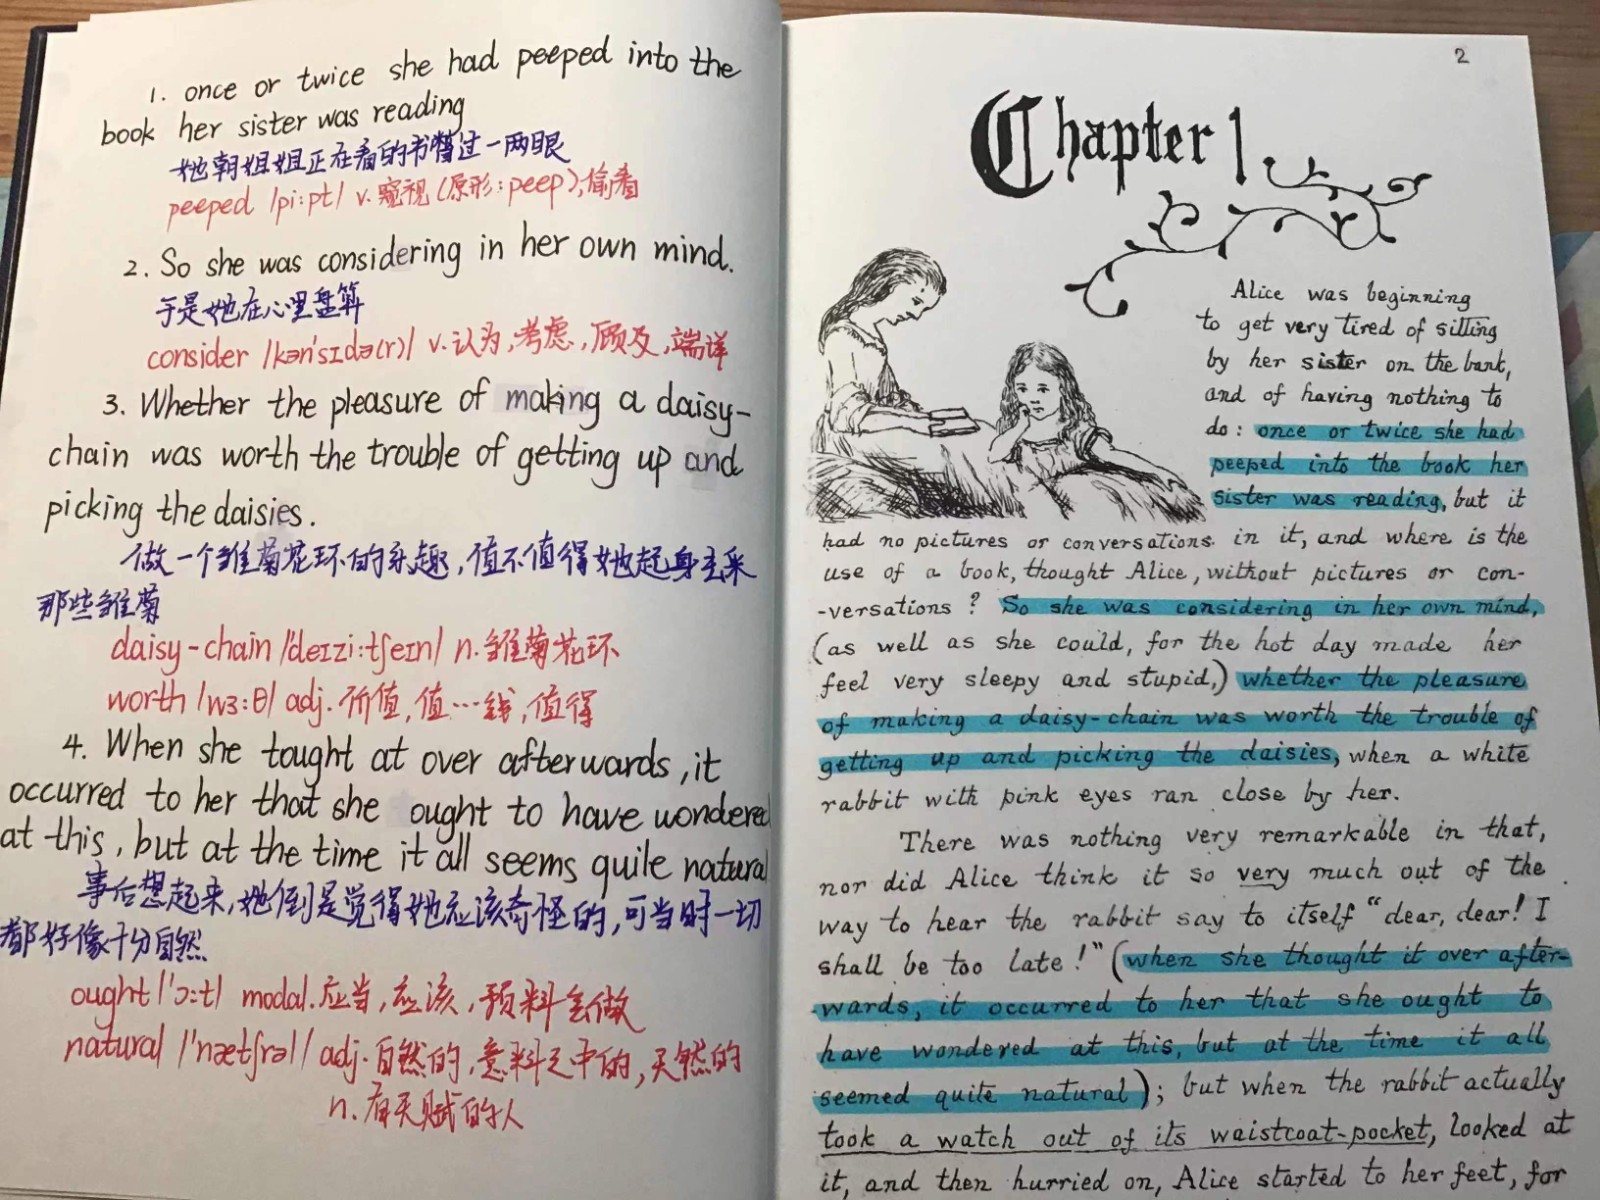 1. once or twice she had peeped into the
book her sister was reading
她朝姐姐正在看的书瞥过一两眼
peeped /pi:pt/ v. 窥视(原形:peep),偷看
2. So she was considering in her own mind.
于是她在心里盘算
consider /kən'sɪdə(r)/ v.认为,考虑,顾及,端详
3. Whether the pleasure of making a daisy-
chain was worth the trouble of getting up and
picking the daisies.
做一个雏菊花环的乐趣,值不值得她起身去采
那些雏菊
daisy-chain /'deɪzi:tʃeɪn/ n.雏菊花环
worth /wɜ:θ/ adj.价值,值…钱,值得
4. When she tought at over afterwards, it
occurred to her that she ought to have wondered
at this, but at the time it all seems quile natural
事后想起来,她倒是觉得她应该奇怪的,可当时一切
都好像十分自然
ought /'ɔ:t/ modal.应当,应该,预料会做
natural /'nætʃrəl/ adj.自然的,意料之中的,天然的
n.有天赋的人
2
Chapter 1
Alice was beginning
to get very tired of sitting
by her sister on the bank,
and of having nothing to
do: once or twice she had
peeped into the book her
sister was reading, but it
had no pictures or conversations in it, and where is the
use of a book, thought Alice, without pictures or con-
-versations? So she was considering in her own mind,
(as well as she could, for the hot day made her
feel very sleepy and stupid,) whether the pleasure
of making a daisy-chain was worth the trouble of
getting up and picking the daisies, when a white
rabbit with pink eyes ran close by her.
There was nothing very remarkable in that,
nor did Alice think it so very much out of the
way to hear the rabbit say to itself "dear, dear! I
shall be too late!" (when she thought it over after-
wards, it occurred to her that she ought to
have wondered at this, but at the time it all
seemed quite natural); but when the rabbit actually
took a watch out of its waistcoat-pocket, looked at
it, and then hurried on, Alice started to her feet, for